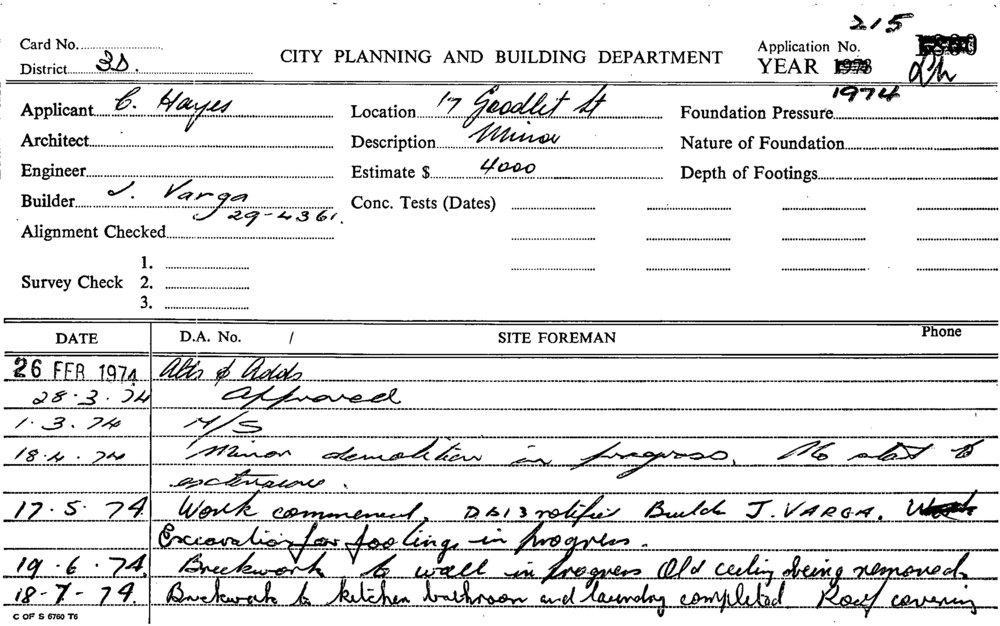 215
Card No.
District 3D.
CITY PLANNING AND BUILDING DEPARTMENT
Application No.
YEAR 1974
Applicant C. Hayes
Location 17 Goodlet St
Foundation Pressure
Architect
Description Minor
Nature of Foundation
Engineer
Estimate $ 4000
Depth of Footings
Builder J. Varga
29-4361.
Conc. Tests (Dates)
Alignment Checked
Survey Check 1.
2.
3.
DATE D.A. No. / SITE FOREMAN Phone
26 FEB 1974 Alts & Adds
28.3.74 Approved
1.3.74 M/S
18.4.74 Minor demolition in progress. No start to
extensions.
17.5.74. Work commenced, DB13 notifies Builder J. VARGA.
Excavation for footings in progress.
19.6.74. Brickwork to wall in progress Old ceiling being removed.
18-7-74. Brickwork to kitchen bathroom and laundry completed Roof covering
C OF S 5760 T6